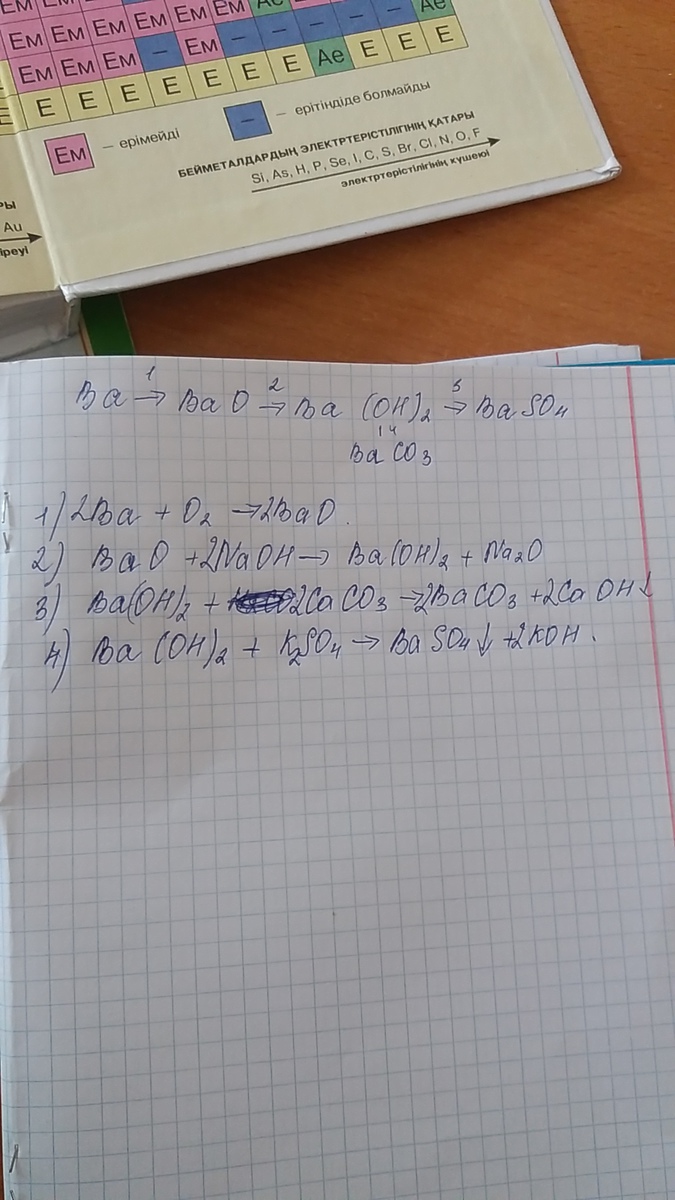 Ем Ем Ем Ем Ем Ем Ае
Ем Ем Ем Ем Ем – – – – – Ае
Ем Ем Ем – Ем – – – – – Ае
Е Е Е Е Е Е Е Е Ае Е Е Е
Ем – ерімейді – – ерітіндіде болмайды
БЕЙМЕТАЛДАРДЫҢ ЭЛЕКТРТЕРІСТІЛІГІНІҢ ҚАТАРЫ
Si, As, H, P, Se, I, C, S, Br, Cl, N, O, F
электртерістілігінің күшеюі
РЫ
Au
іреуі
Ba 1→ BaO 2→ Ba(OH)2 3→ BaSO4
↓4
BaCO3
1) 2Ba + O2 → 2BaO.
2) BaO + 2NaOH → Ba(OH)2 + Na2O
3) Ba(OH)2 + 2CaCO3 → 2BaCO3 + 2CaOH↓
4) Ba(OH)2 + K2SO4 → BaSO4↓ + 2KOH.